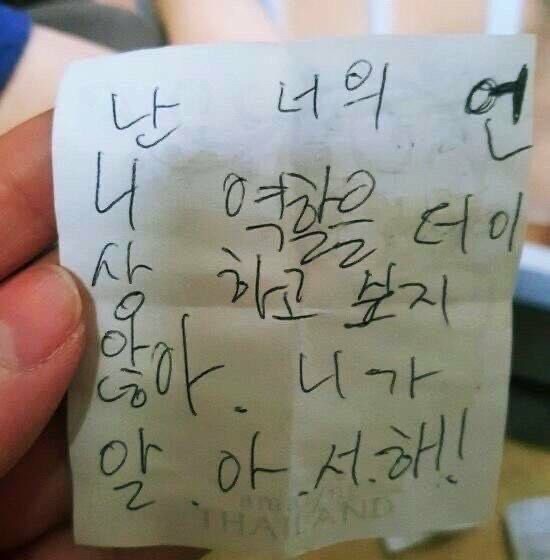 난 너의 언
니 역할을 더이
상 하고 싶지
않아. 니가
알.아.서.해!!
THAILAND